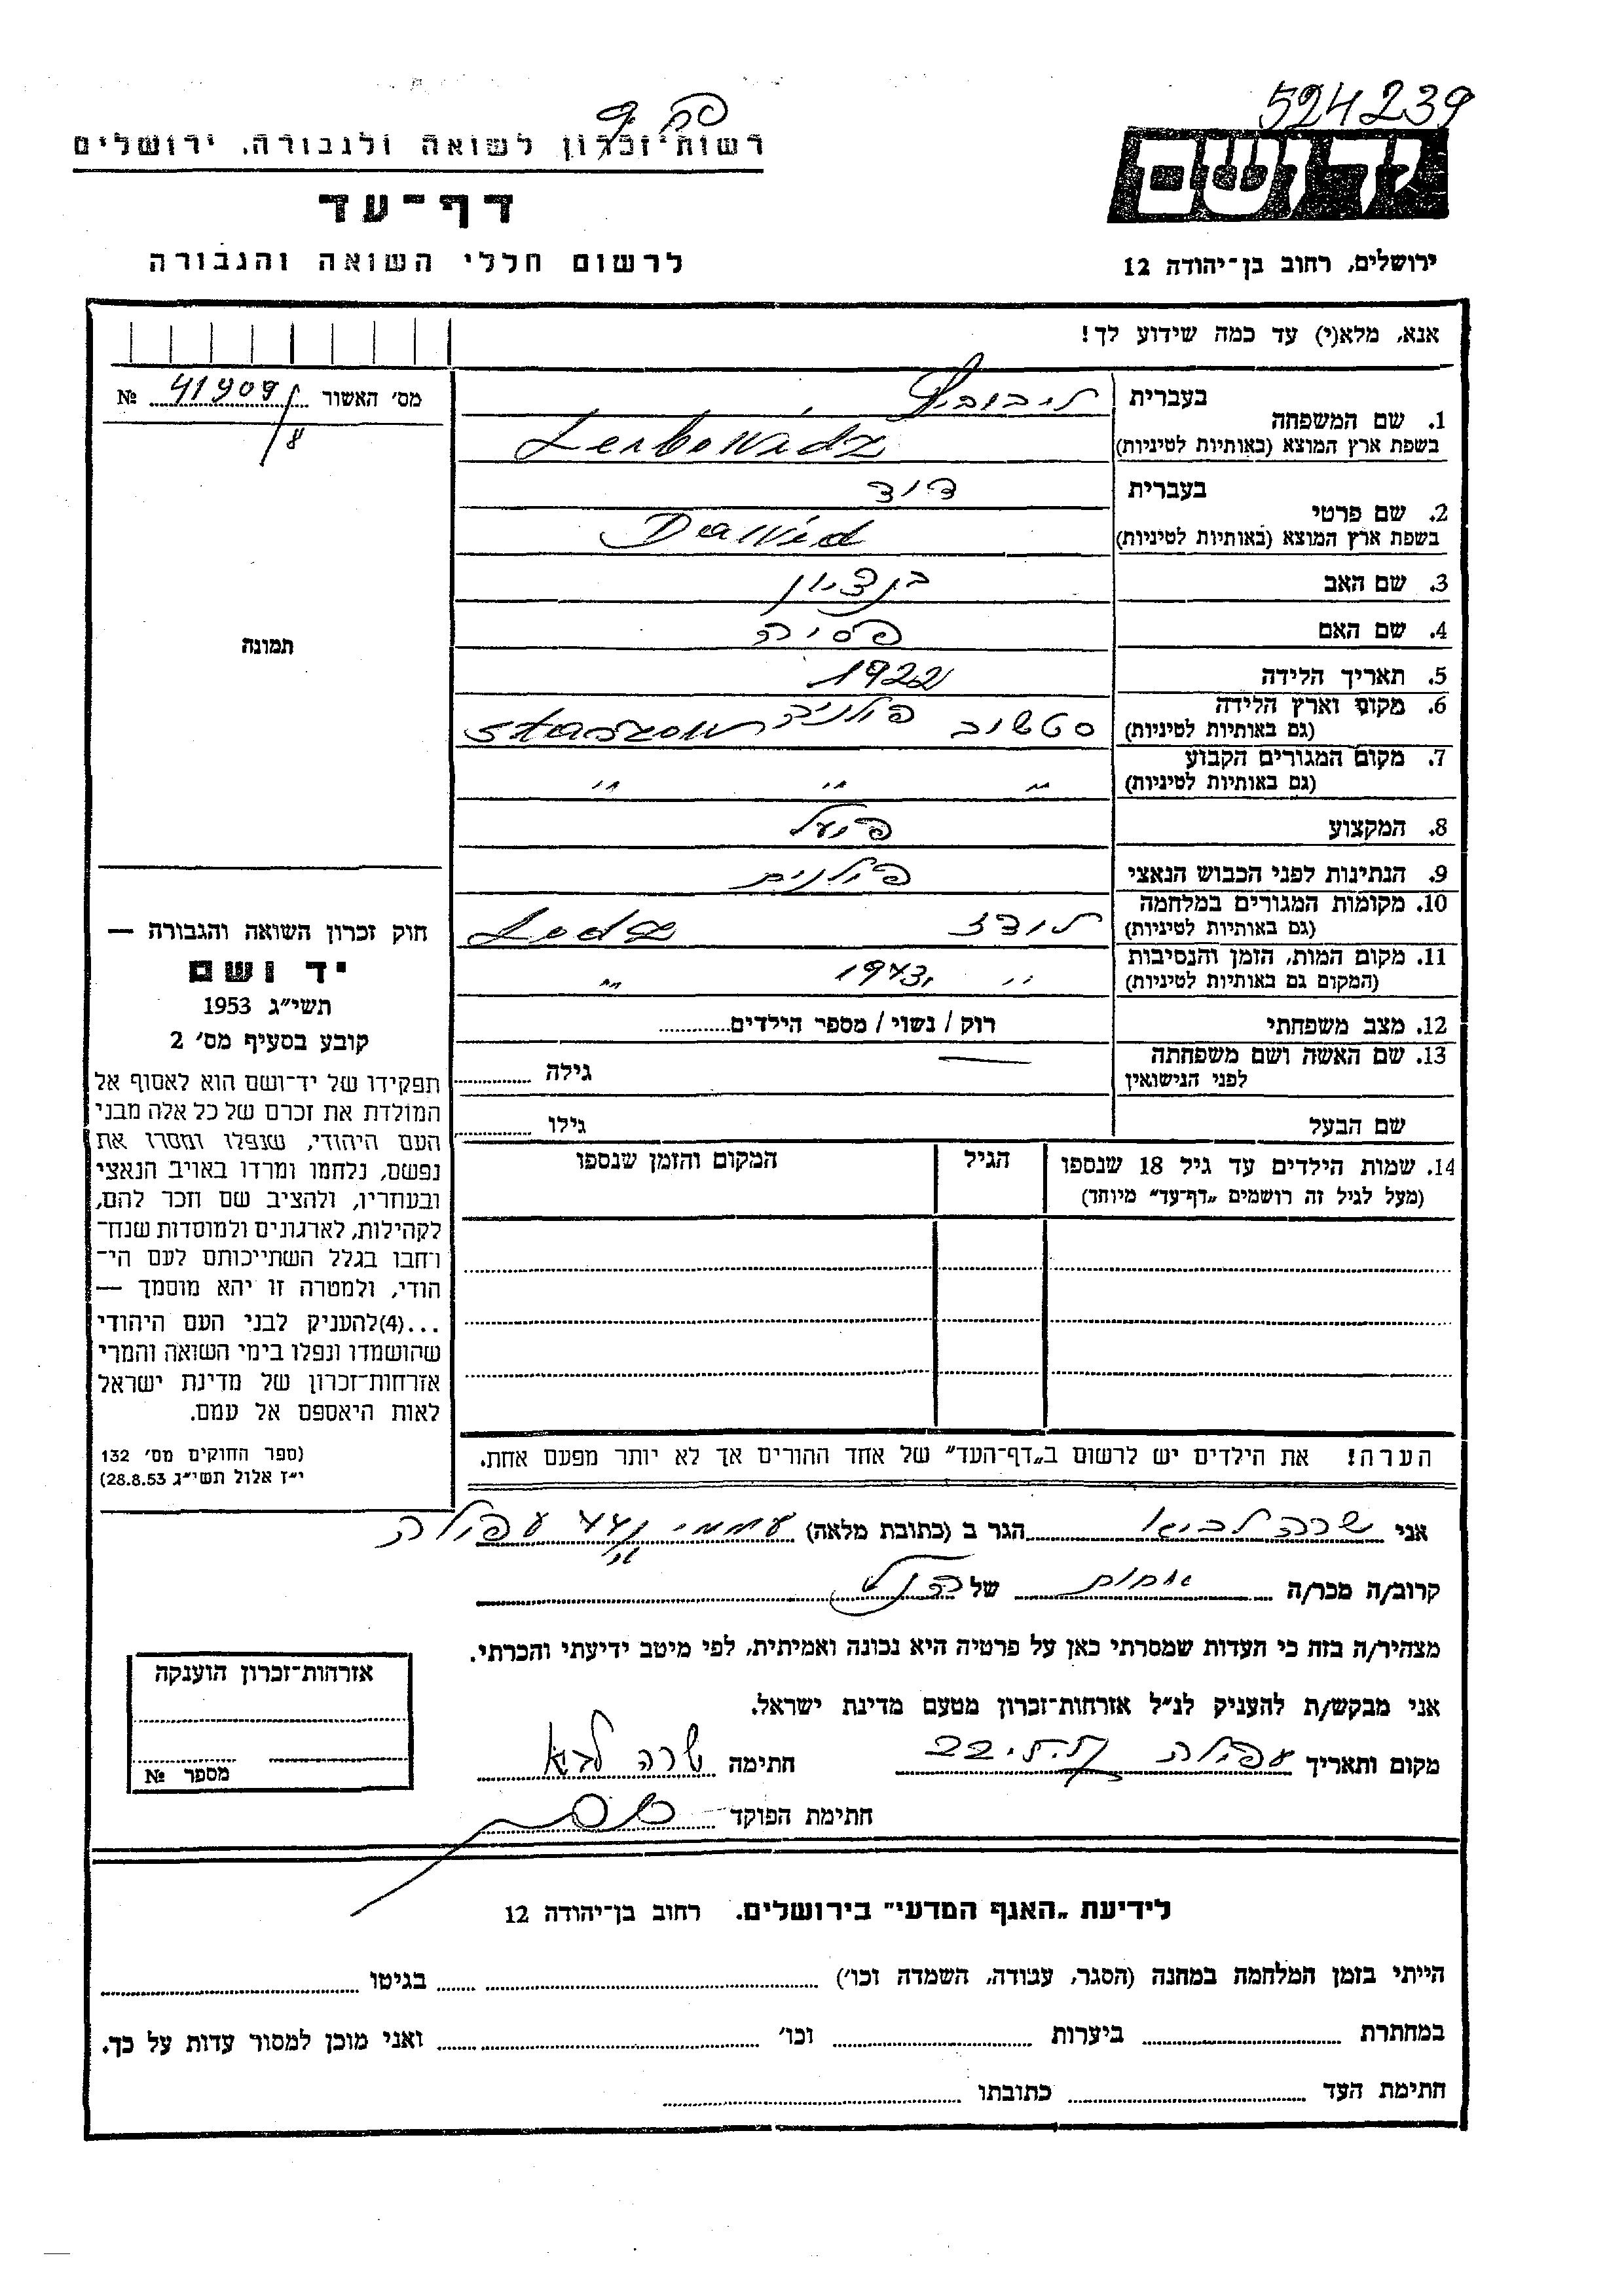 524239
יד ושם
ירושלים, רחוב בן-יהודה 12
רשות-זכרון לשואה ולגבורה, ירושלים
דף-עד
לרשום חללי השואה והגבורה
אנא, מלא(י) עד כמה שידוע לך!
מס׳ האשור 41909/8 №
תמונה
1. שם המשפחה
בעברית ליבוביץ
בשפת ארץ המוצא (באותיות לטיניות) Leibowidz
2. שם פרטי
בעברית דוד
בשפת ארץ המוצא (באותיות לטיניות) Dawid
3. שם האב בן ציון
4. שם האם פסיה
5. תאריך הלידה 1922
6. מקום וארץ הלידה סטשוב פולניה Staszow
(גם באותיות לטיניות)
7. מקום המגורים הקבוע " " "
(גם באותיות לטיניות)
8. המקצוע פועל
9. הנתינות לפני הכבוש הנאצי פולנית
10. מקומות המגורים במלחמה לודז Lodz
(גם באותיות לטיניות)
11. מקום המות, הזמן והנסיבות " 1943 "
(המקום גם באותיות לטיניות)
12. מצב משפחתי רוק / נשוי / מספר הילדים
13. שם האשה ושם משפחתה גילה
לפני הנישואין
שם הבעל גילו
14. שמות הילדים עד גיל 18 שנספו הגיל המקום והזמן שנספו
(מעל לגיל זה רושמים „דף-עד״ מיוחד)
הערה! את הילדים יש לרשום ב„דף-העד״ של אחד ההורים אך לא יותר מפעם אחת.
חוק זכרון השואה והגבורה —
יד ושם
תשי״ג 1953
קובע בסעיף מס׳ 2
תפקידו של יד-ושם הוא לאסוף אל
המולדת את זכרם של כל אלה מבני
העם היהודי, שנפלו ומסרו את
נפשם, נלחמו ומרדו באויב הנאצי
ובעוזריו, ולהציב שם וזכר להם,
לקהילות, לארגונים ולמוסדות שנח־
רחבו בגלל השתייכותם לעם הי־
הודי, ולמטרה זו יהא מוסמך —
...(4)להעניק לבני העם היהודי
שהושמדו ונפלו בימי השואה והמרי
אזרחות-זכרון של מדינת ישראל
לאות היאספם אל עמם.
(ספר החוקים מס׳ 132
י״ז אלול תשי״ג 28.8.53)
אני שרה לביא הגר ב (כתובת מלאה) עפולה
קרוב/ה מכר/ה אחות של הנ״ל
מצהיר/ה בזה כי העדות שמסרתי כאן על פרטיה היא נכונה ואמיתית, לפי מיטב ידיעתי והכרתי.
אני מבקש/ת להעניק לנ״ל אזרחות-זכרון מטעם מדינת ישראל.
מקום ותאריך עפולה חתימה שרה לביא
חתימת הפוקד
אזרחות-זכרון הוענקה
מספר №
לידיעת „האגף המדעי״ בירושלים. רחוב בן-יהודה 12
הייתי בזמן המלחמה במחנה (הסגר, עבודה, השמדה וכו׳) בגיטו
במחתרת ביערות וכו׳ ואני מוכן למסור עדות על כך.
חתימת העד כתובתו